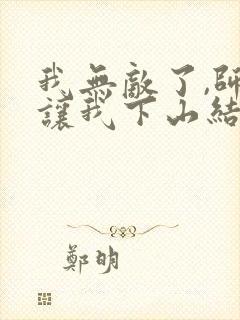 我無敵了,師
讓我下山結
鄭明